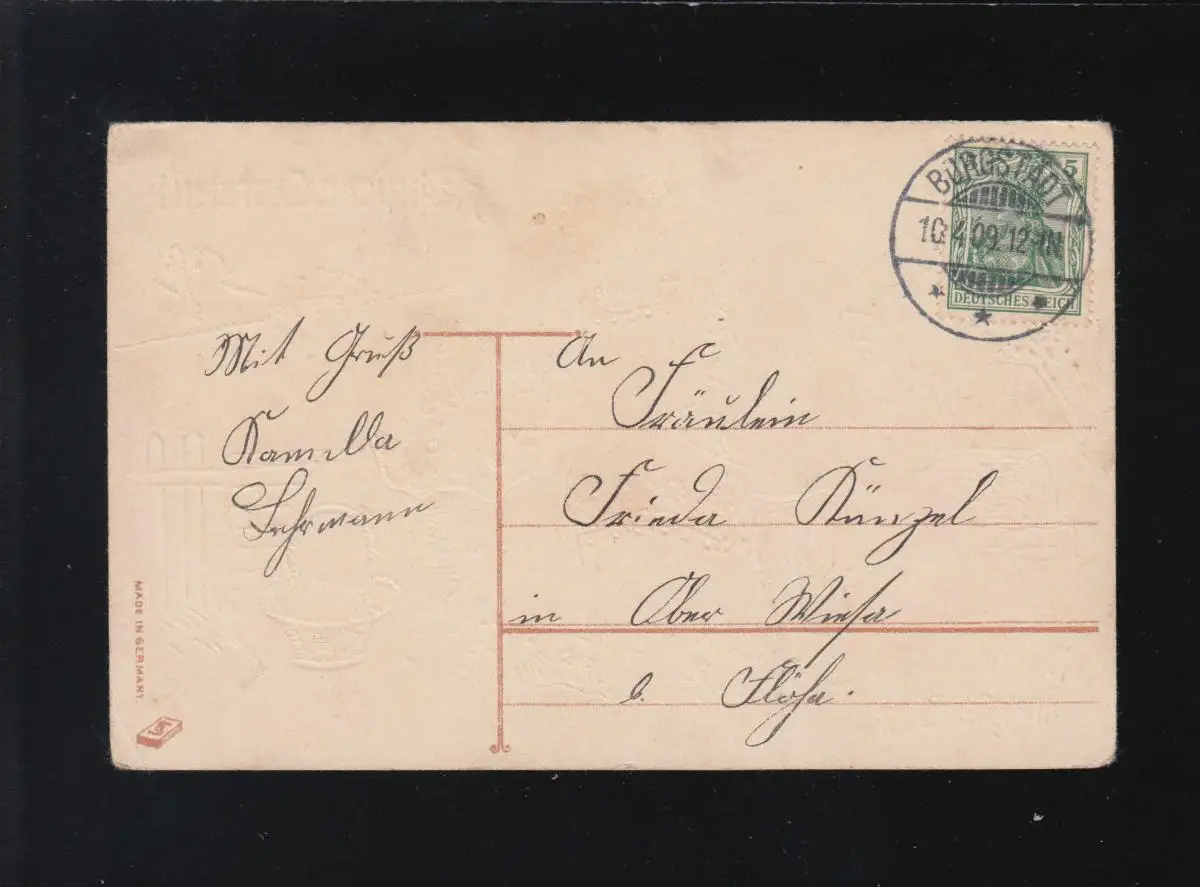 5
BURGSTÄDT
10.4.09.12-1N
DEUTSCHES REICH
Mit Gruß
Kamilla
Lehrmann
An
Fräulein
Frieda Künzel
in Ober Wiesa
b. Flöha.
MADE IN GERMANY